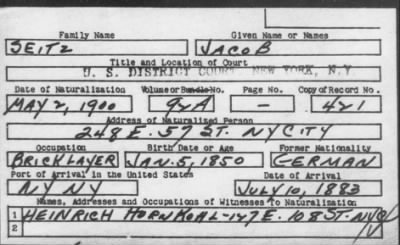 Family Name Given Name or Names
SEITZ JACOB
Title and Location of Court
U. S. DISTRICT COURT NEW YORK, N.Y.
Date of Naturalization Volume or Bundle No. Page No. Copy of Record No.
MAY 2, 1900 92A — 421
Address of Naturalized Person
248 E. 57 ST. NY CITY
Occupation Birth Date or Age Former Nationality
BRICKLAYER JAN. 5, 1850 GERMAN
Port of Arrival in the United States Date of Arrival
NY NY JULY 10, 1883
Names, Addresses and Occupations of Witnesses To Naturalization
1 HEINRICH HORNKOHL-147 E. 108 ST. NYC
2